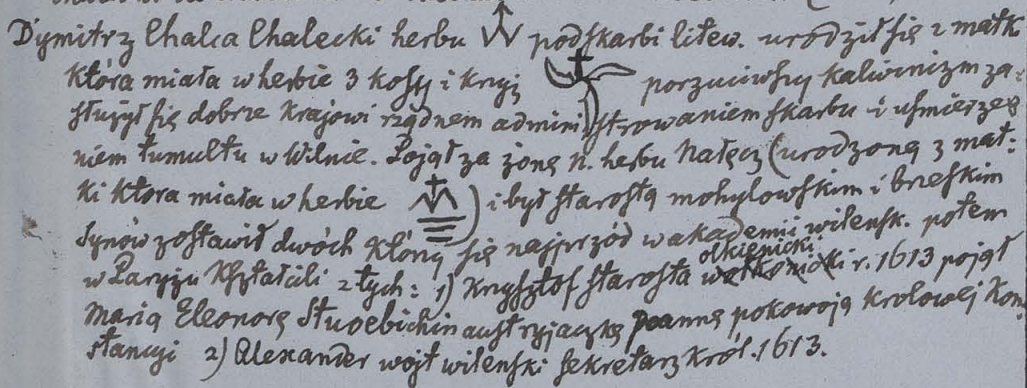 Dymitrz Chalca Chalecki herbu podskarbi litew. urodził się z matk
która miała w herbie 3 kosy i krzyż porzuciwszy kalwinizm za:
służył się dobrze krajowi rządnem admini strowaniem skarbu i uśmierze
niem tumultu w Wilnie. Pojął za żonę N. herbu Nałęcz (urodzoną z mat:
ki która miała w herbie ) i był starostą mohylowskim i brzeskim
Synów zostawił dwóch którzy się najprzód w akademii wileńsk. potem
w Paryżu kształcili z tych: 1) Krzysztof starosta olkienicki r. 1613 pojął
Marią Eleonorę austryjaczkę pannę pokojową królowej Kon
stancyi 2) Alexander wojt wileński sekretarz król. 1613.